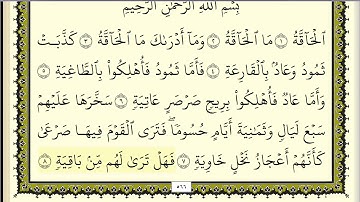 بِسْمِ ٱللَّهِ ٱلرَّحْمَٰنِ ٱلرَّحِيمِ
ٱلْحَآقَّةُ ١ مَا ٱلْحَآقَّةُ ٢ وَمَآ أَدْرَىٰكَ مَا ٱلْحَآقَّةُ ٣ كَذَّبَتْ
ثَمُودُ وَعَادٌۢ بِٱلْقَارِعَةِ ٤ فَأَمَّا ثَمُودُ فَأُهْلِكُوا۟ بِٱلطَّاغِيَةِ ٥
وَأَمَّا عَادٌ فَأُهْلِكُوا۟ بِرِيحٍ صَرْصَرٍ عَاتِيَةٍ ٦ سَخَّرَهَا عَلَيْهِمْ
سَبْعَ لَيَالٍ وَثَمَٰنِيَةَ أَيَّامٍ حُسُومًا ۖ فَتَرَى ٱلْقَوْمَ فِيهَا صَرْعَىٰ
كَأَنَّهُمْ أَعْجَازُ نَخْلٍ خَاوِيَةٍ ٧ فَهَلْ تَرَىٰ لَهُم مِّنۢ بَاقِيَةٍ ٨
٥٦٦